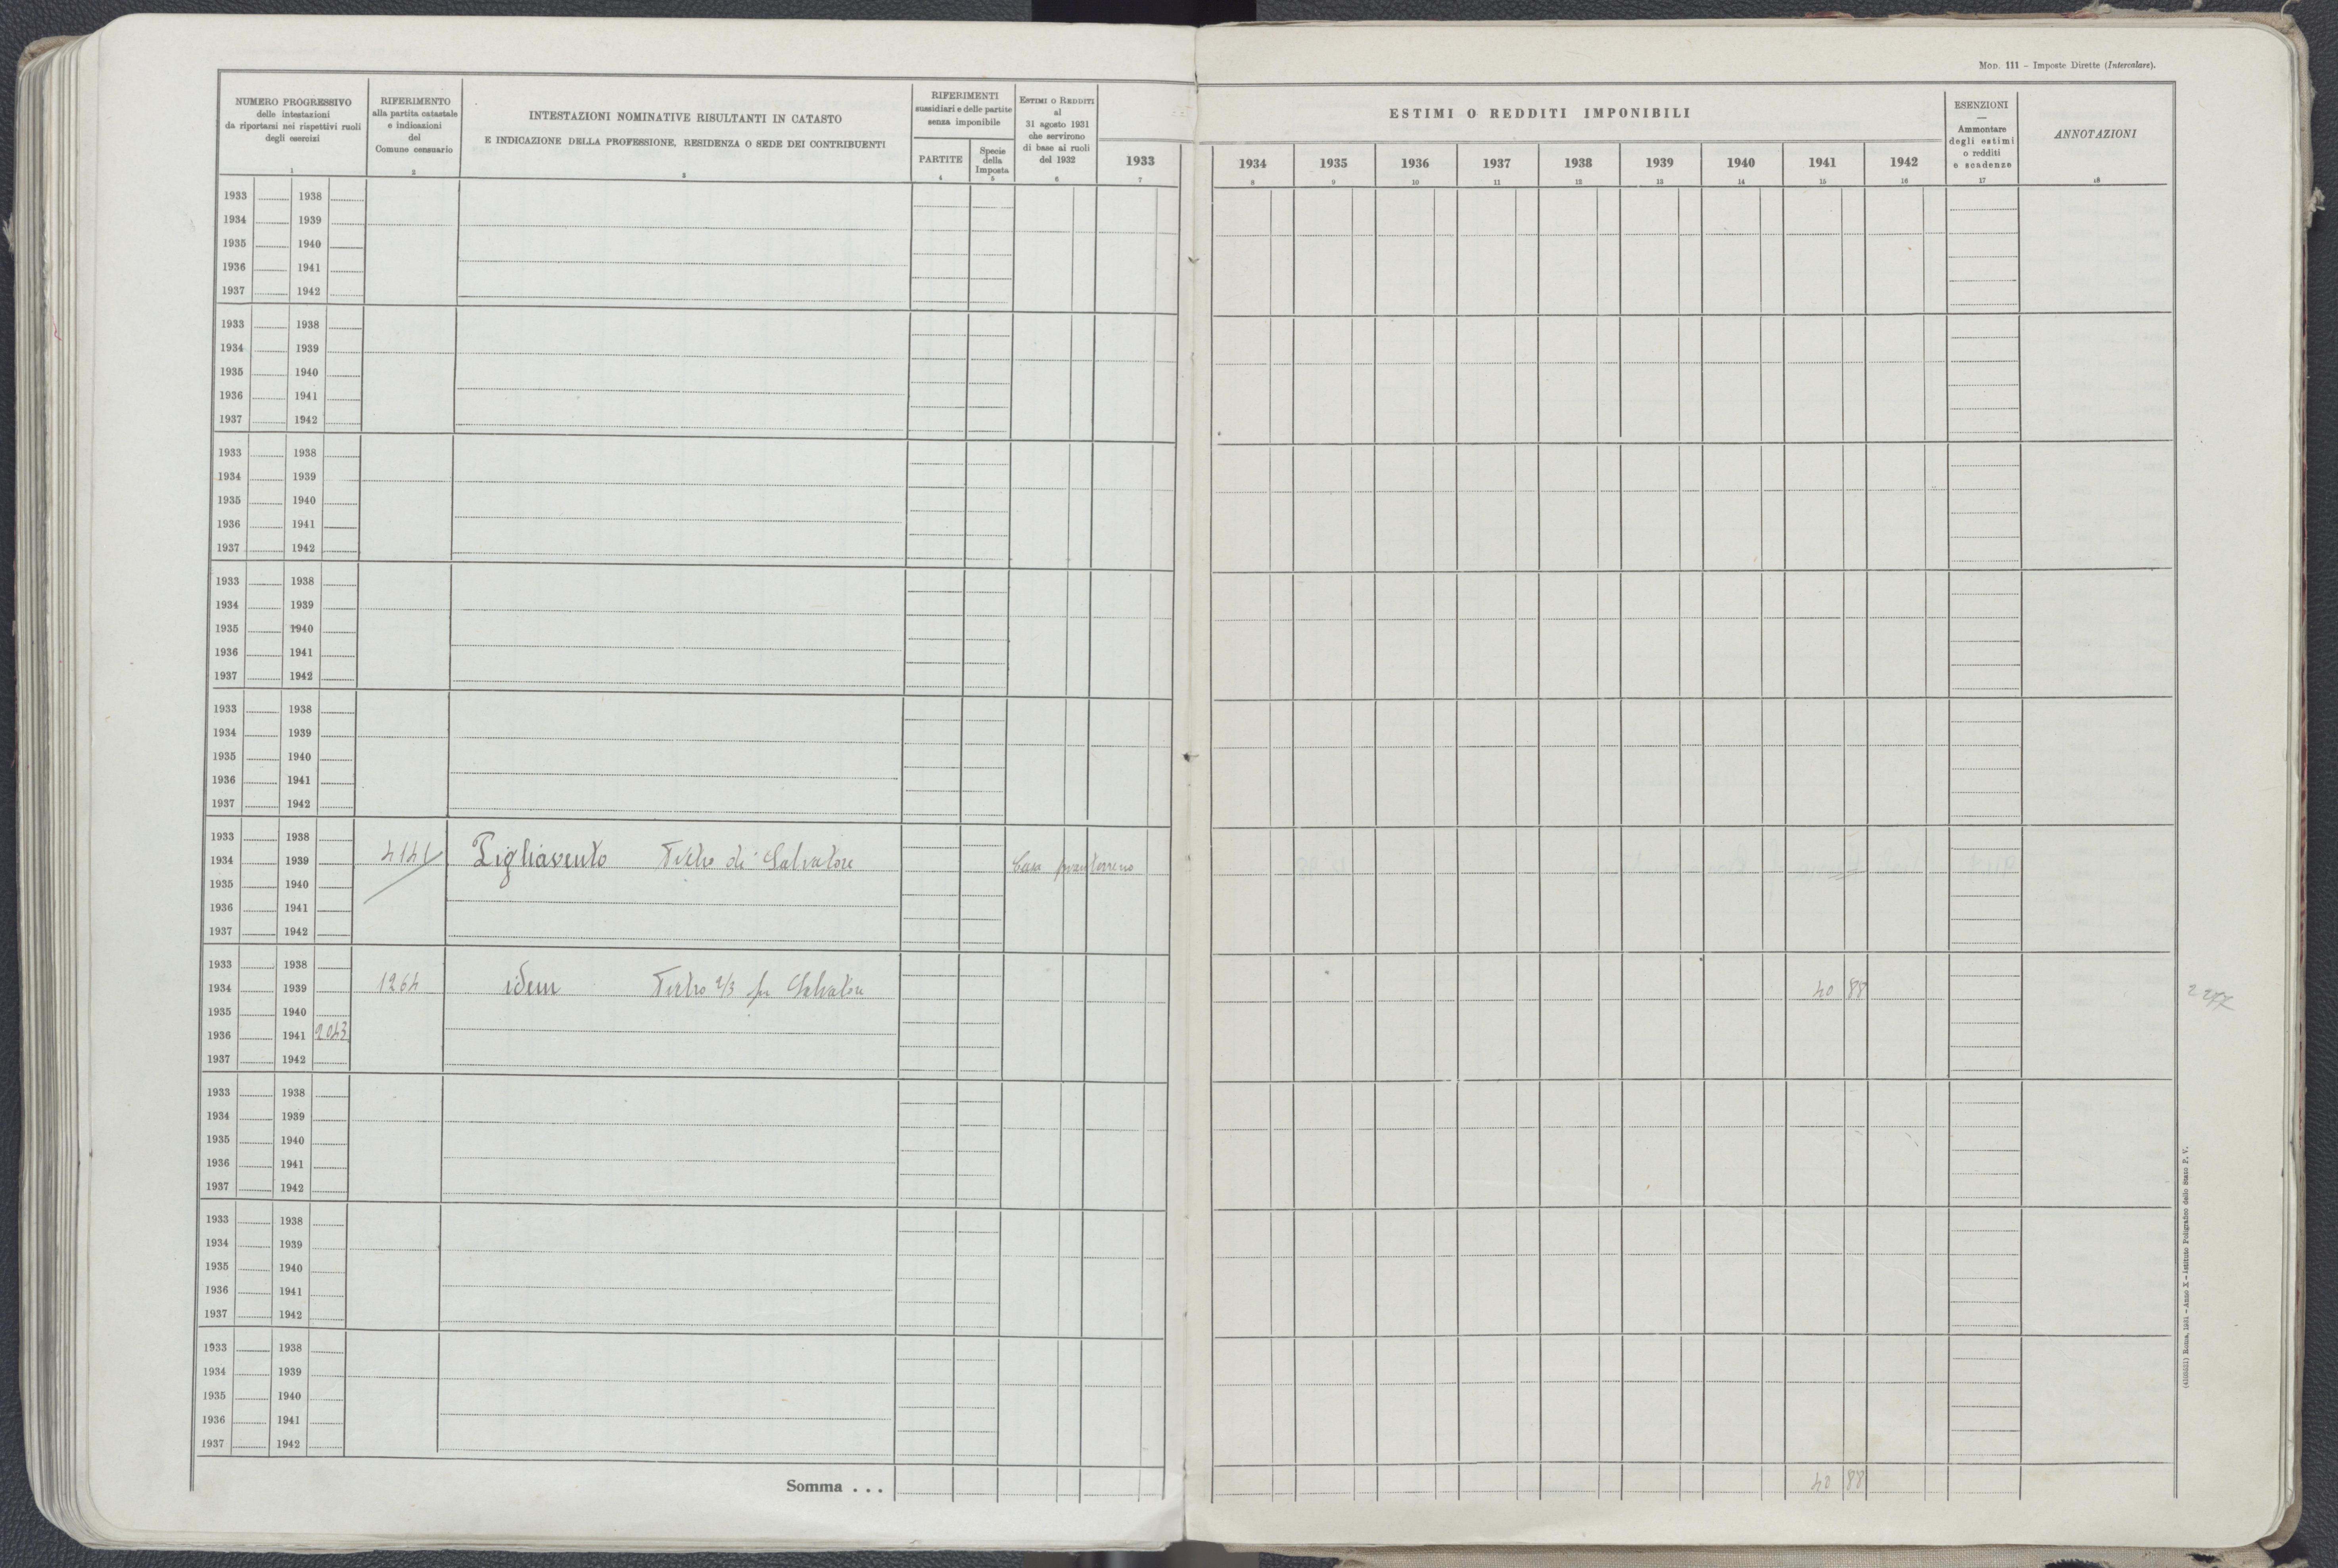 Mod. 111 – Imposte Dirette (Intercalare).
NUMERO PROGRESSIVO
delle intestazioni
da riportarsi nei rispettivi ruoli
degli esercizi
1
RIFERIMENTO
alla partita catastale
e indicazioni
del
Comune censuario
2
INTESTAZIONI NOMINATIVE RISULTANTI IN CATASTO
E INDICAZIONE DELLA PROFESSIONE, RESIDENZA O SEDE DEI CONTRIBUENTI
3
RIFERIMENTI
sussidiari e delle partite
senza imponibile
PARTITE
4
Specie
della
Imposta
5
Estimi o Redditi
al
31 agosto 1931
che servirono
di base ai ruoli
del 1932
6
1933
7
ESTIMI O REDDITI IMPONIBILI
1934 1935 1936 1937 1938 1939 1940 1941 1942
8 9 10 11 12 13 14 15 16
ESENZIONI
—
Ammontare
degli estimi
o redditi
e scadenze
17
ANNOTAZIONI
18
1933 1938
1934 1939
1935 1940
1936 1941
1937 1942
1933 1938
1934 1939
1935 1940
1936 1941
1937 1942
1933 1938
1934 1939
1935 1940
1936 1941
1937 1942
1933 1938
1934 1939
1935 1940
1936 1941
1937 1942
1933 1938
1934 1939
1935 1940
1936 1941
1937 1942
1933 1938
1934 1939 4141 Pigliavento Pietro di Salvatore Casa pianterreno
1935 1940
1936 1941
1937 1942
1933 1938
1934 1939 1264 idem Pietro 2/3 fu Salvatore 40 88
1935 1940
1936 1941 2043
1937 1942
1933 1938
1934 1939
1935 1940
1936 1941
1937 1942
1933 1938
1934 1939
1935 1940
1936 1941
1937 1942
1933 1938
1934 1939
1935 1940
1936 1941
1937 1942
Somma . . . 40 88